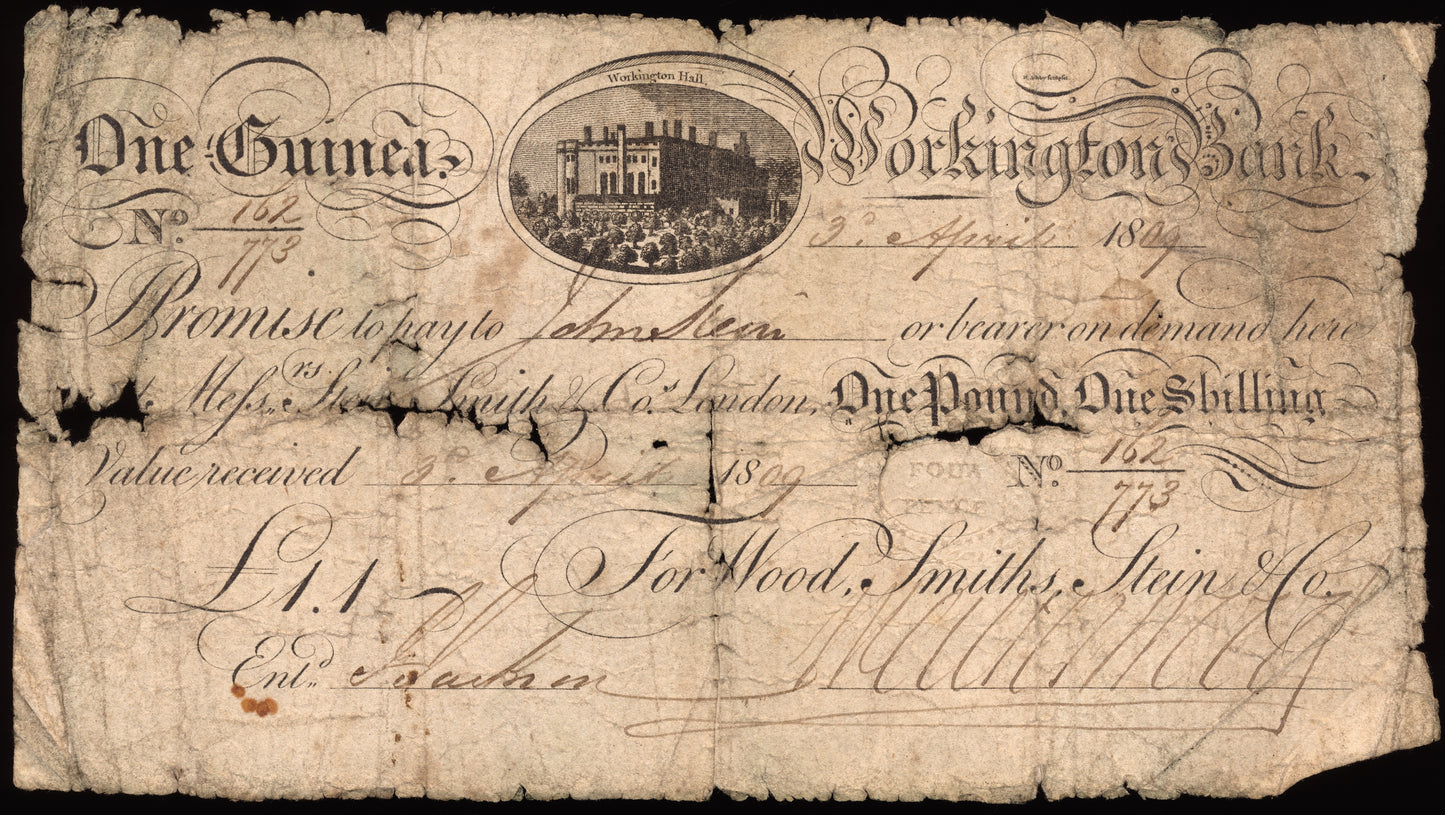 Workington Hall
One Guinea. Workington Bank.
No. 162/773 3d. April 1809
I Promise to pay to John Stein or bearer on demand here
Messrs. Stein Smith & Co. London, One Pound, One Shilling
Value received 3d. April 1809 No. 162/773
FOUR
PENCE
£1.1 For Wood, Smiths, Stein & Co.
Entd. Jackson